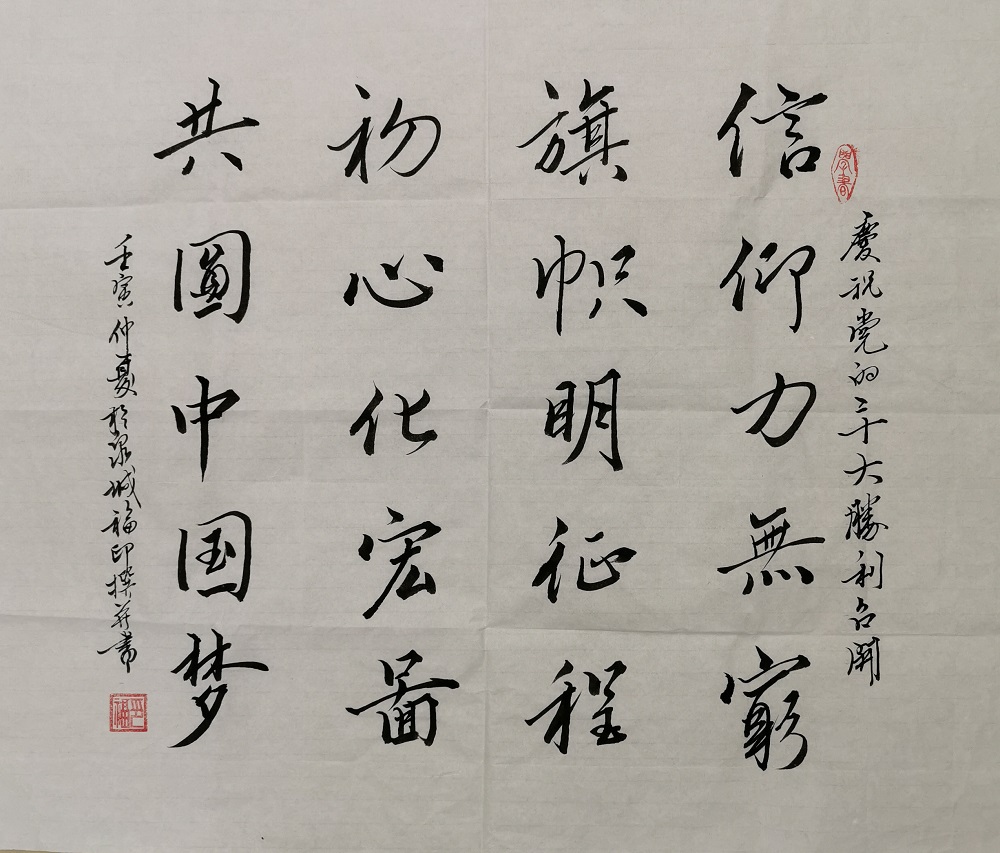 慶祝党的二十大勝利召開
信仰力無窮
旗帜明征程
初心化宏啚
共圓中国梦
壬寅仲夏於泉城福印撰并書